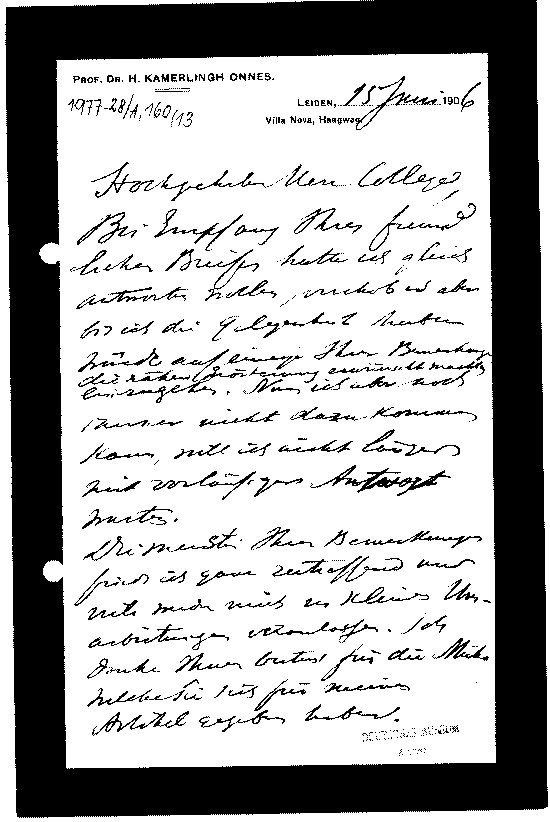 PROF. DR. H. KAMERLINGH ONNES.
1977-28/A,160/13
LEIDEN, 15 Juni 1906
Villa Nova, Haagweg
Hochgeehrter Herr College,
Bei Empfang Ihres freund
lichen Briefes hatte ich gleich
antworten wollen, verschob es aber
bis ich die Gelegenheit haben
würde auf einige Ihrer Bemerkungen
die nähere Erörterung erwünscht machten
einzugehen. Nun ich aber noch
immer nicht dazu kommen
kann, will ich nicht länger
mit vorläufiger Antwort
warten.
Die meisten Ihrer Bemerkungen
finde ich ganz zutreffend und
mich zu kleinen Um-
arbeitungen veranlassen. Ich
danke Ihnen bestens für die Mühe
welche Sie sich für meinen
Artikel gegeben haben.
DEUTSCHES MUSEUM